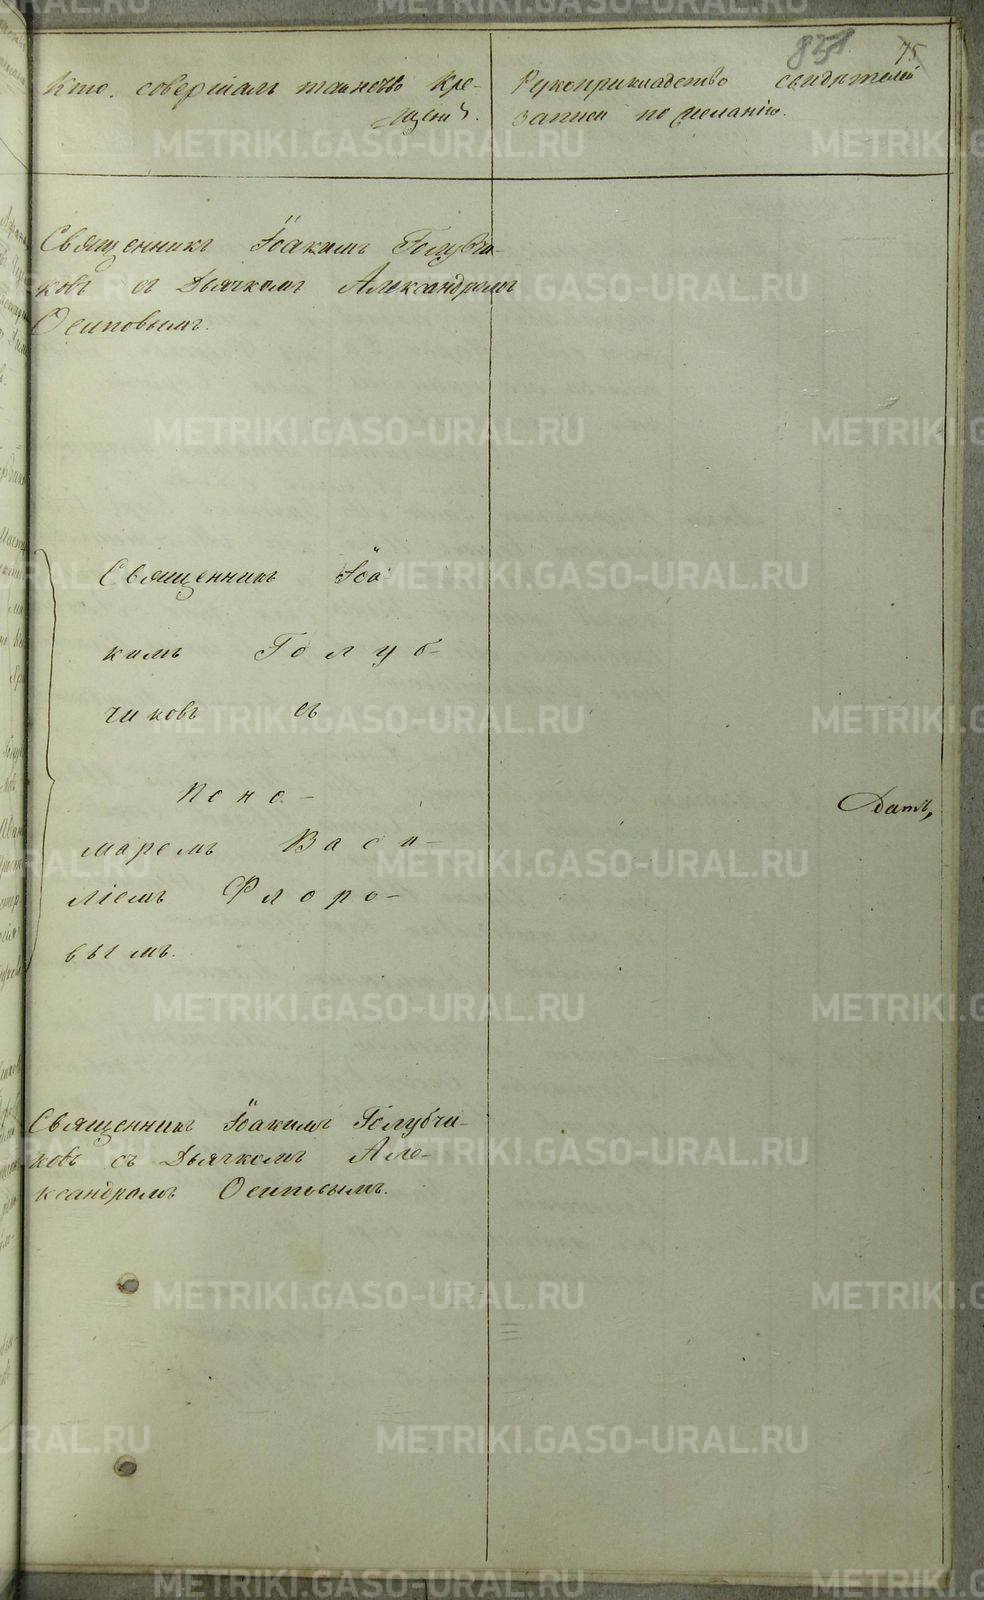 75
Кто совершалъ таинство Кре-
щенія.
Рукоприкладство свидѣтелей
записи по желанію.
Священникъ Іоакимъ Голубчи-
ковъ съ Дьячкомъ Александромъ
Осиповымъ.
Священникъ Іоа-
кимъ Голуб-
чиковъ съ
Поно-
маремъ Васи-
ліемъ Флоро-
вымъ.
Священникъ Іоакимъ Голубчи-
ковъ съ Дьячкомъ Але-
ксандромъ Осиповымъ.
METRIKI.GASO-URAL.RU